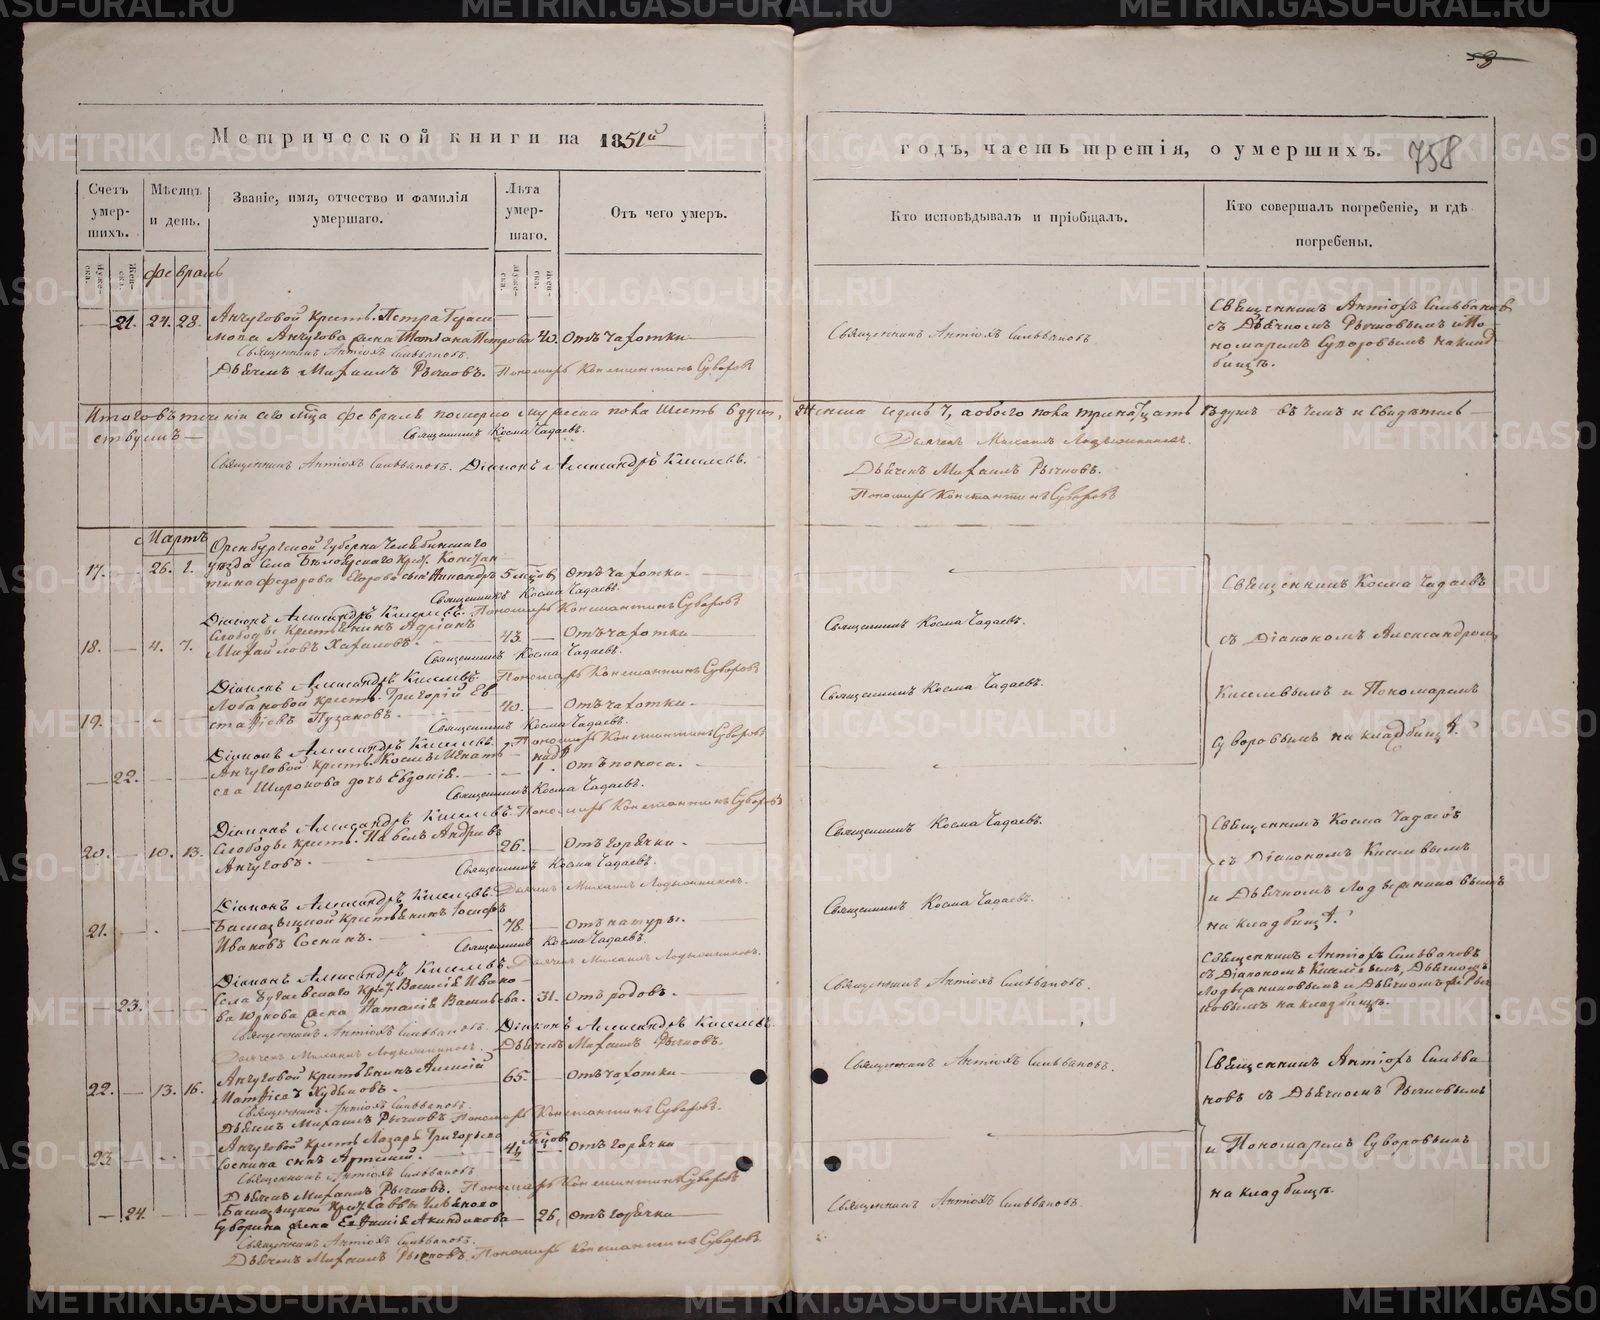 Метрической книги на 1851й
годъ, часть третія, о умершихъ.
758
Счетъ умер-шихъ.
Мѣсяцъ и день.
Званіе, имя, отчество и фамилія умершаго.
Лѣта умер-шаго.
Отъ чего умеръ.
Кто исповѣдывалъ и пріобщалъ.
Кто совершалъ погребеніе, и гдѣ погребены.
Февраль
21. 24. 28. Анчуговой крест. Петра Гераси
мова Анчугова жена Татіана Петрова 40. Отъ чахотки
Священникъ Антіохъ Сильвановъ.
Дьячекъ Михаилъ Рычковъ. Пономарь Константинъ Суворовъ
Священникъ Антіохъ Сильвановъ
Священникъ Антіохъ Сильвановъ
съ Дьячкомъ Рычковымъ и По-
номаремъ Суворовымъ на клад-
бищѣ.
Итого въ теченіи сего мѣсяца февраля померло мужеска пола шесть 6 душъ, женска седмь 7, а обоего пола тринадцать 13 душъ въ чемъ и свидѣтель-
ствуемъ —
Священникъ Косма Чадаевъ.
Дьячекъ Михаилъ
Священникъ Антіохъ Сильвановъ. Діаконъ Александръ Киселевъ.
Дьячекъ Михаилъ Рычковъ.
Пономарь Константинъ Суворовъ
Мартъ
Оренбургской Губерніи Челябинскаго
17. 26. 1. уѣзда села Бѣлоярскаго крест. Констан
тина Федорова сынъ Никандръ 5 мѣсяцовъ Отъ чахотки
Священникъ Косма Чадаевъ.
Діаконъ Александръ Киселевъ. Пономарь Константинъ Суворовъ
Слободы крестьянинъ Адріанъ
18. 4. 7. Михайловъ 43. Отъ чахотки
Священникъ Косма Чадаевъ.
Діаконъ Александръ Киселевъ. Пономарь Константинъ Суворовъ
Лобановой крест. Григорій Ев
19. стафіевъ Пузановъ. 40. Отъ чахотки
Священникъ Косма Чадаевъ.
Діаконъ Александръ Киселевъ. Пономарь Константинъ Суворовъ
22. Анчуговой крест. Космы Игнать
ева Широкова дочь Евдокія. 1. Отъ поноса.
Священникъ Косма Чадаевъ.
Діаконъ Александръ Киселевъ. Пономарь Константинъ Суворовъ
Слободы крест. Павелъ Андреевъ
20. 10. 13. Анчуговъ. 26. Отъ горячки
Священникъ Косма Чадаевъ.
Діаконъ Александръ Киселевъ. Дьячекъ Михаилъ
крестьянинъ Іосифъ
21. Ивановъ Соснинъ. 78. Отъ натуры.
Священникъ Косма Чадаевъ.
Діаконъ Александръ Киселевъ. Дьячекъ Михаилъ
Села Бугаевскаго крест. Василія Ивано
23. ва Юркова жена Наталія Васильева. 31. Отъ родовъ.
Священникъ Антіохъ Сильвановъ. Діаконъ Александръ Киселевъ.
Дьячекъ Михаилъ Дьячекъ Михаилъ Рычковъ.
Анчуговой крестьянинъ Алексій
22. 13. 16. Матфіевъ Худяковъ. 65. Отъ чахотки
Священникъ Антіохъ Сильвановъ.
Дьячекъ Михаилъ Рычковъ. Пономарь Константинъ Суворовъ.
Анчуговой крест. Лазаря Григорьева
23. Соснина сынъ Артемій. Отъ горячки
Священникъ Антіохъ Сильвановъ.
Дьячекъ Михаилъ Рычковъ. Пономарь Константинъ Суворовъ
24. крест. Саввы
Суворина жена Акиндинова 26, Отъ горячки
Священникъ Антіохъ Сильвановъ.
Дьячекъ Михаилъ Рычковъ. Пономарь Константинъ Суворовъ
Священникъ Косма Чадаевъ.
Священникъ Косма Чадаевъ.
Священникъ Косма Чадаевъ.
Священникъ Косма Чадаевъ.
Священникъ Антіохъ Сильвановъ.
Священникъ Антіохъ Сильвановъ.
Священникъ Антіохъ Сильвановъ.
Священникъ Косма Чадаевъ
съ Діакономъ Александромъ
Киселевымъ и Пономаремъ
Суворовымъ на кладбищѣ.
Священникъ Косма Чадаевъ
съ Діакономъ Киселевымъ
и Дьячкомъ
на кладбищѣ.
Священникъ Антіохъ Сильвановъ
съ Діакономъ Киселевымъ, Дьячкомъ
и Дьячкомъ же Рыч
ковымъ на кладбищѣ.
Священникъ Антіохъ Сильва
новъ съ Дьячкомъ Рычковымъ
и Пономаремъ Суворовымъ
на кладбищѣ.
METRIKI.GASO-URAL.RU